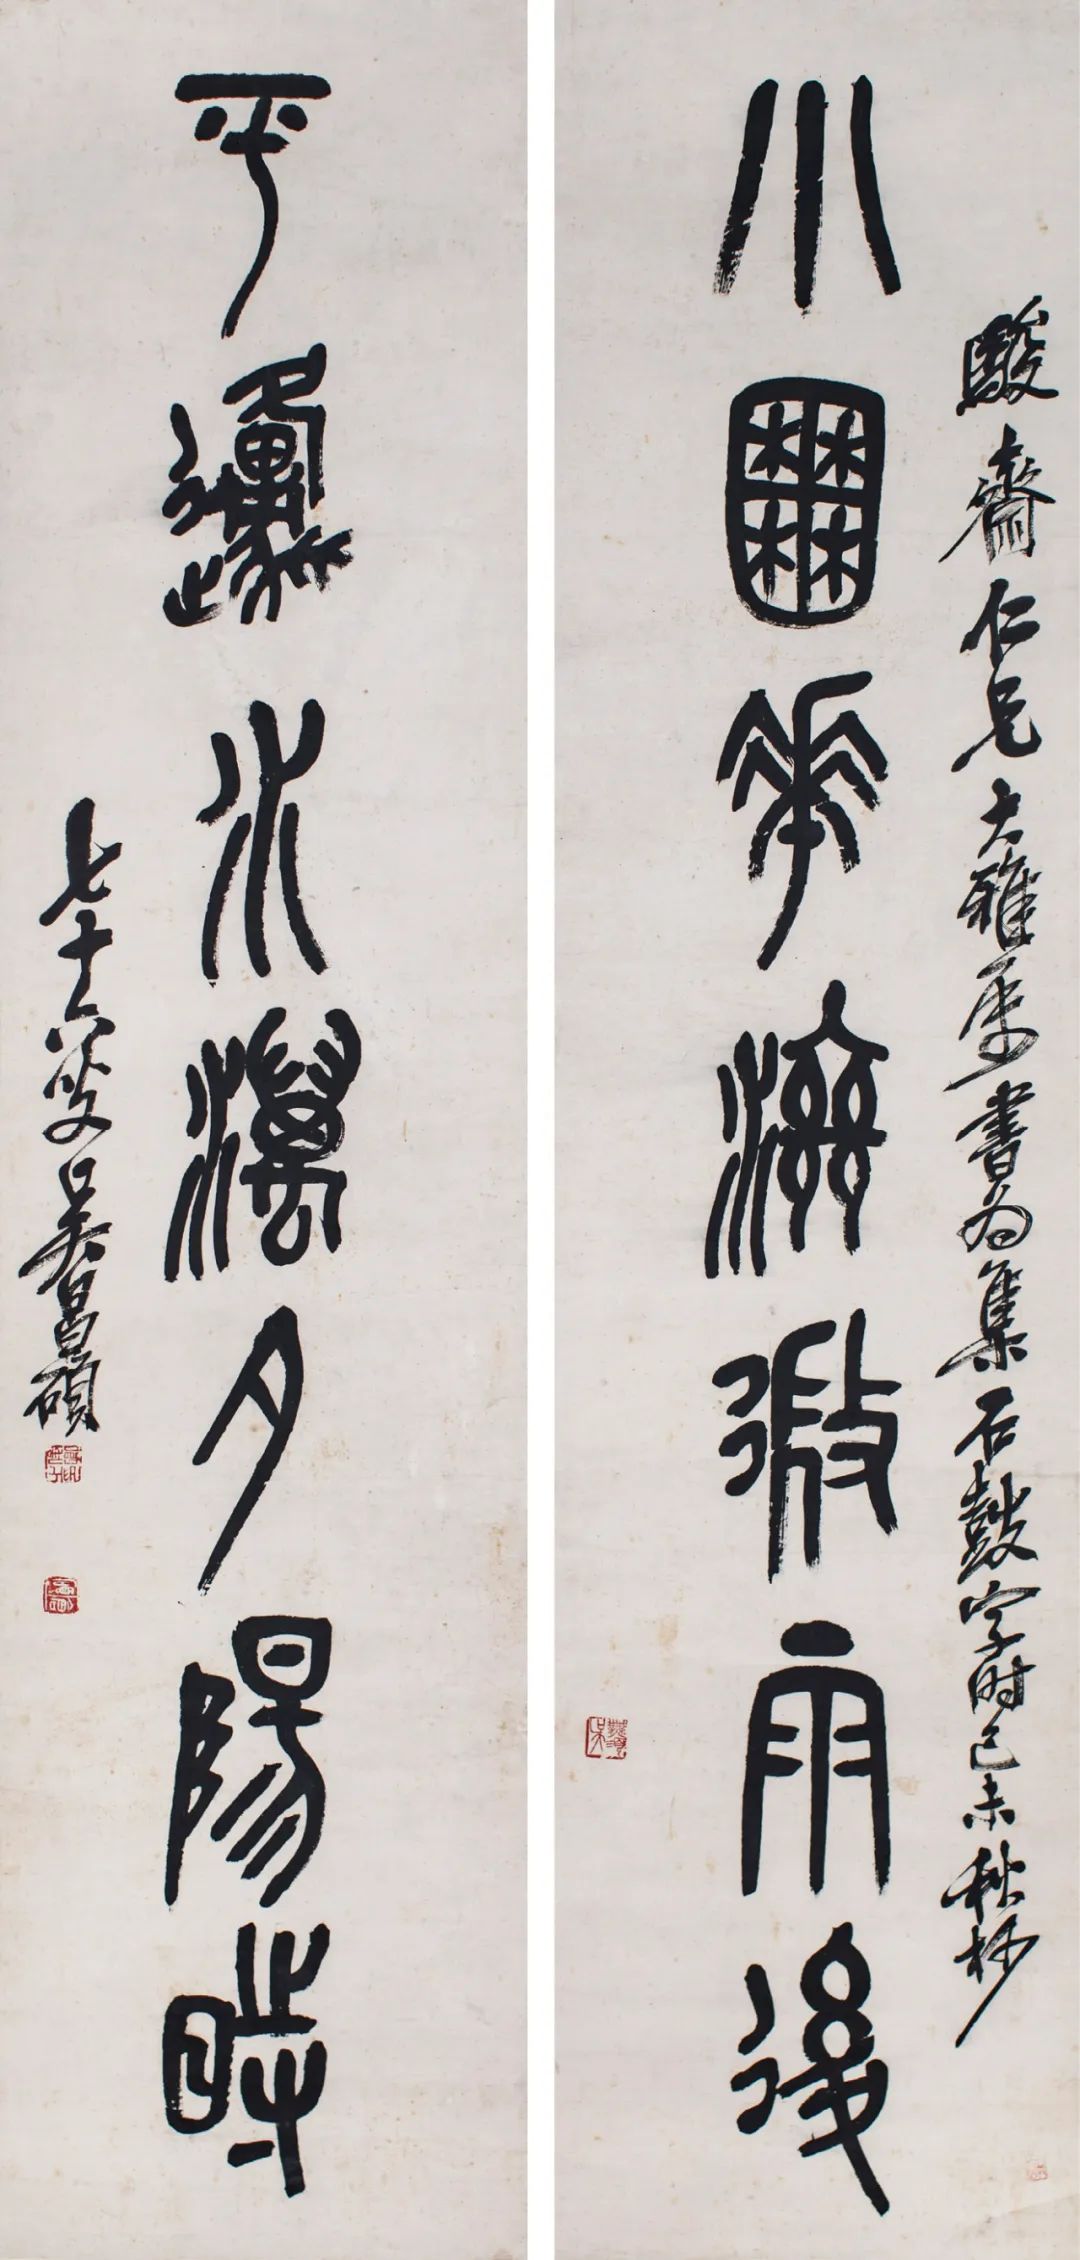 駿齋仁兄大雅属書為集石鼓字時己未秋杪
小囿華滋微雨後
平邍水澫夕陽時
七十六叟吳昌碩